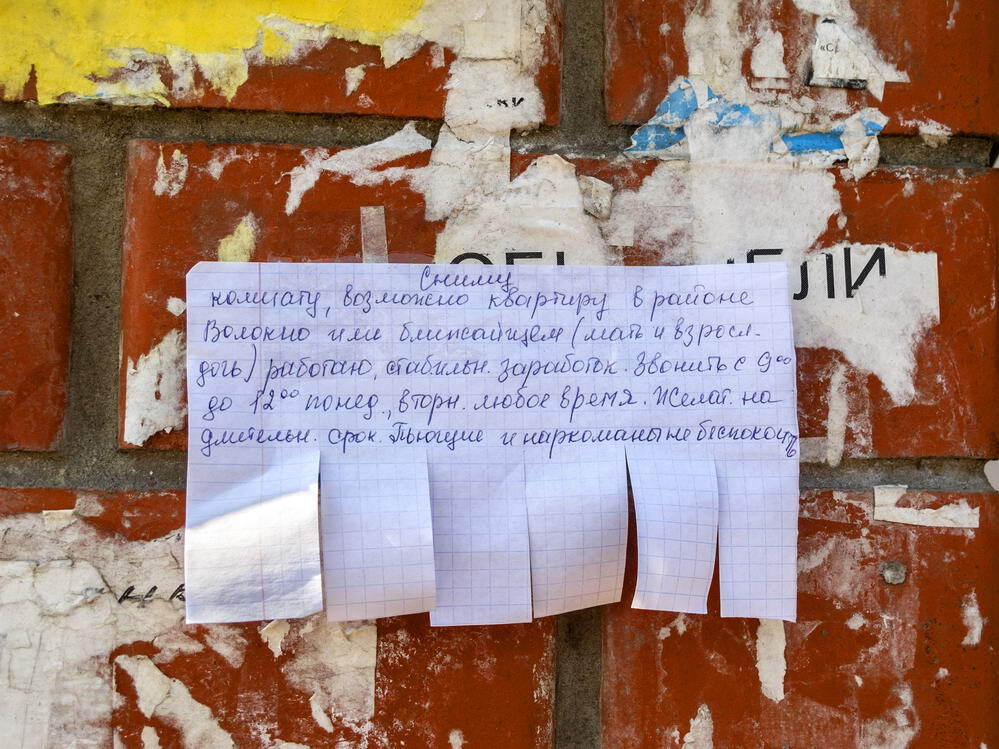 «СВ
ки
ЕЛИ
Сниму
комнату, возможно квартиру в районе
Волокно или ближайщем (мать и взросл.
дочь) работаю, стабильн. заработок. Звонить с 9⁰⁰
до 12⁰⁰ понед., вторн. любое время. Желат. на
длительн. срок. Пьющие и наркоманы не беспокоить